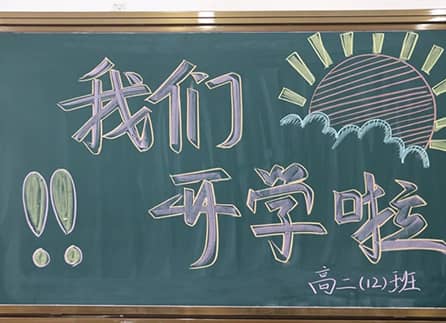 我们
开学啦
!!
高二(12)班